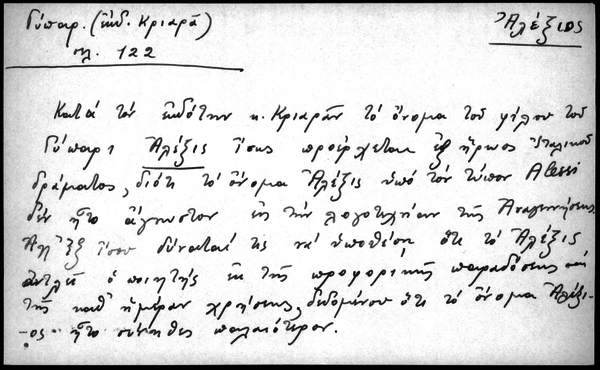 Γύπαρ. (ἔκδ. Κριαρᾶ)
σελ. 122
Ἀλέξιος
Κατὰ τὸν ἐκδότην κ. Κριαρᾶν τὸ ὄνομα τοῦ φίλου τοῦ
Γύπαρι Ἀλέξις ἴσως προέρχεται ἐξ ἥρωος ἰταλικοῦ
δράματος, διότι τὸ ὄνομα Ἀλέξις ὑπὸ τὸν τύπον Alessi
δὲν ἦτο ἄγνωστον εἰς τὴν λογοτεχνίαν τῆς Ἀναγεννήσεως.
Ἀλλ' ἐξ ἴσου δύναταί τις νὰ ὑποθέσῃ ὅτι τὸ Ἀλέξις
ἀντλεῖ ὁ ποιητὴς ἐκ τῆς προφορικῆς παραδόσεως καὶ
τῆς καθ' ἡμέραν χρήσεως, δεδομένου ὅτι τὸ ὄνομα Ἀλέξι-
-ος ἦτο σύνηθες παλαιότερον.